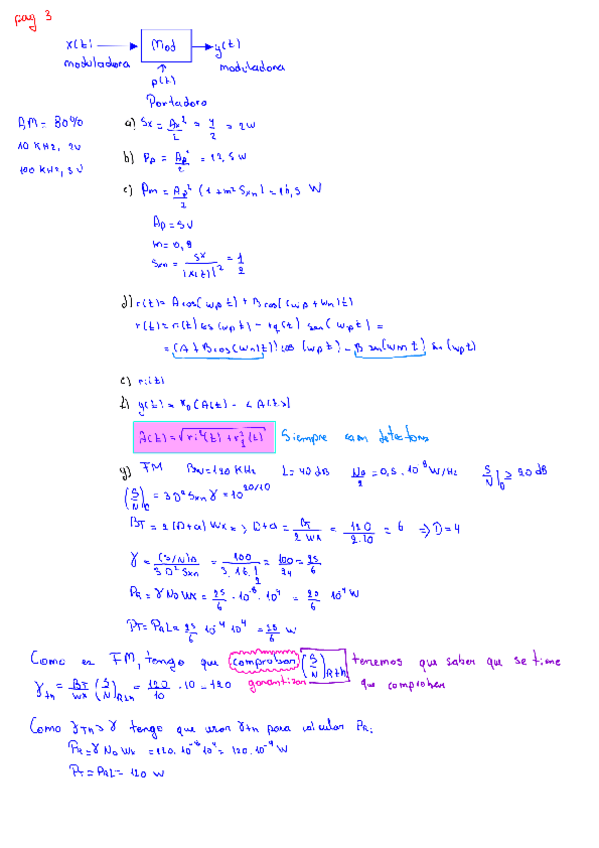 pag 3
x(t) → Mod → y(t)
moduladora
moduladora
p(t)
Portadora
AM = 80%
10 KHz, 2V
100 KHz, 5V
a) Sx = Ax²/2 = 4/2 = 2W
b) Pp = Ap²/2 = 12,5 W
c) Pm = Ap²/2 (1+m² Sxn) = 16,5 W
Ap = 5V
m = 0,8
Sxn = Sx/|x(t)|² = 1/2
d) r(t) = A cos(wp t) + B cos((wp + wm)t)
r(t) = ri(t) cos(wp t) - rq(t) sen(wp t) =
= (A + B cos(wm t)) cos(wp t) - B sen(wm t) sen(wp t)
e) ri(t)
f) y(t) = KD (A(t) - <A(t)>)
A(t) = √(ri²(t) + rq²(t)) Siempre
g) FM BN = 120 KHz L = 40 dB N0/2 = 0,5 · 10⁻⁸ W/Hz (S/N)D ≥ 20 dB
(S/N)D = 3 D² Sxn γ = 10^(20/10)
BT = 2(D+a) Wx => D+a = BT/(2 Wx) = 120/(2·10) = 6 => D = 4
γ = (S/N)D/(3 D² Sxn) = 100/(3·16·1/2) = 100/24 = 25/6
PR = γ N0 Wx = 25/6 · 10⁻⁸ · 10⁴ = 25/6 10⁻⁴ W
PT = PR L = 25/6 10⁻⁴ 10⁴ = 25/6 W
Como es FM, tengo que comprobar (S/N)Rth tenemos que saber que se tiene
γth = BT/Wx (S/N)Rth = 120/10 · 10 = 120 garantizar que comprobar
Como γTh > γ tengo que usar γth para calcular PR:
PR = γ N0 Wx = 120 · 10⁻⁸ 10⁴ = 120 · 10⁻⁴ W
PT = PR L = 120 W